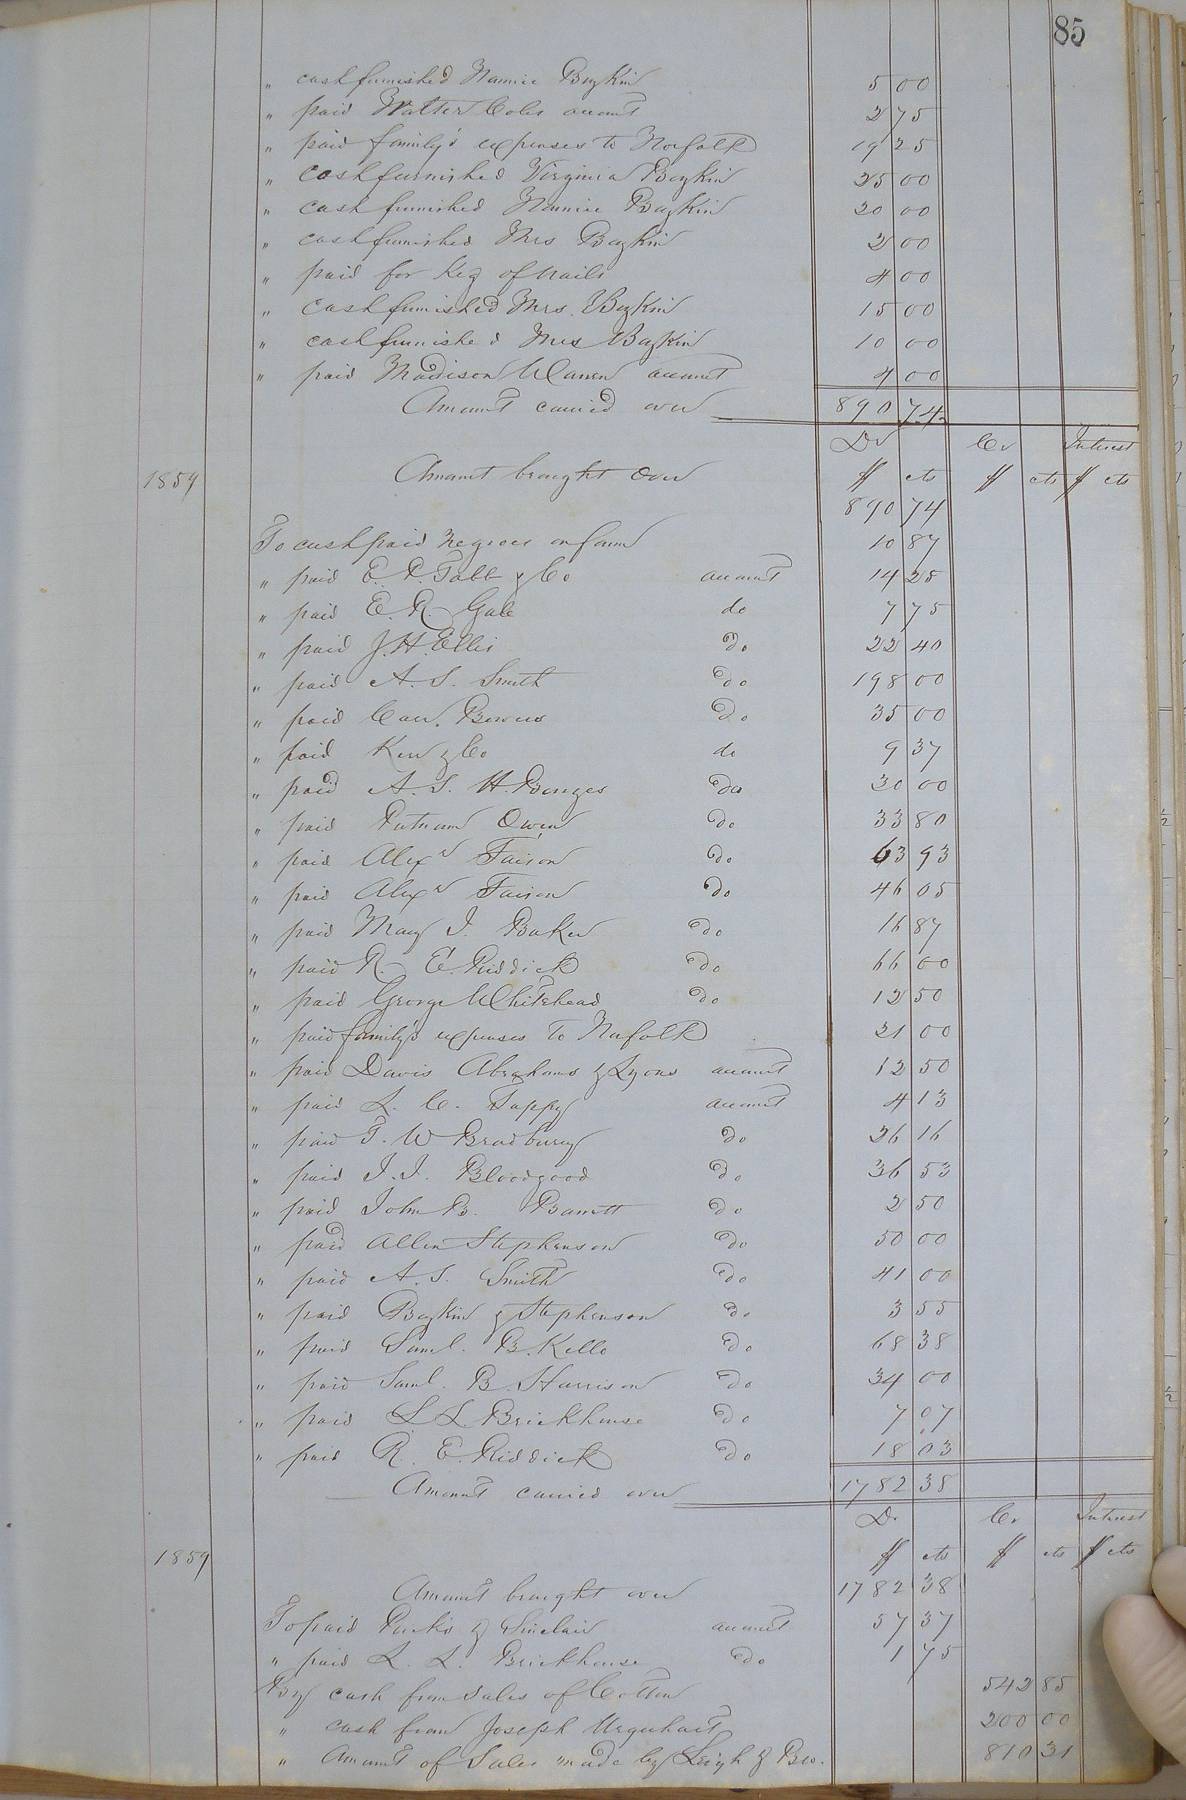 85
" cash furnished Nannie Boykin 5 00
" paid Walter Coles account 2 75
" paid family's expenses to Norfolk 19 25
" cash furnished Virginia Boykin 25 00
" cash furnished Nannie Boykin 20 00
" cash furnished Mrs Boykin 2 00
" paid for Keg of nails 4 00
" cash furnished Mrs. Boykin 15 00
" cash furnished Mrs Boykin 10 00
" paid Madison Warren account 4 00
Amount carried over 890 74
Dr Cr Interest
1859 Amount brought over $ cts $ cts $ cts
890 74
To cash paid Negroes on farm 10 87
" paid E. P. Tabb & Co account 14 25
" paid E. R. Gale do 7 75
" paid J. H. Ellis do 22 40
" paid A. S. Smith do 198 00
" paid Bowers do 35 00
" paid Kerr & Co do 9 37
" paid A. S. H. Burges do 30 00
" paid Putnam Owen do 33 80
" paid Alexr Faison do 63 93
" paid Alexr Faison do 46 05
" paid Mary J. Baker do 16 87
" paid R. E. Riddick do 66 00
" paid George Whitehead do 12 50
" paid family's expenses to Norfolk 21 00
" paid Davis Abrahams & Lyons account 12 50
" paid L. C. Tappy account 4 13
" paid T. W Bradbury do 26 16
" paid J. J. Bloodgood do 36 53
" paid John B. Barrett do 2 50
" paid Allen Stephenson do 50 00
" paid A. S. Smith do 41 00
" paid Boykin & Stephenson do 3 55
" paid Saml. B. Kello do 68 38
" paid Saml. B. Harrison do 34 00
" paid L L. Brickhouse do 7 07
" paid R. E. Riddick do 18 03
Amount carried over 1782 38
Dr Cr Interest
1859 $ cts $ cts $ cts
Amount brought over 1782 38
To paid Parks & Sinclair account 57 37
" paid L. L. Brickhouse do 1 75
By cash from sales of Cotton 542 85
" cash from Joseph Urquhart 200 00
" Amount of Sales made by Leigh & Bro. 810 31